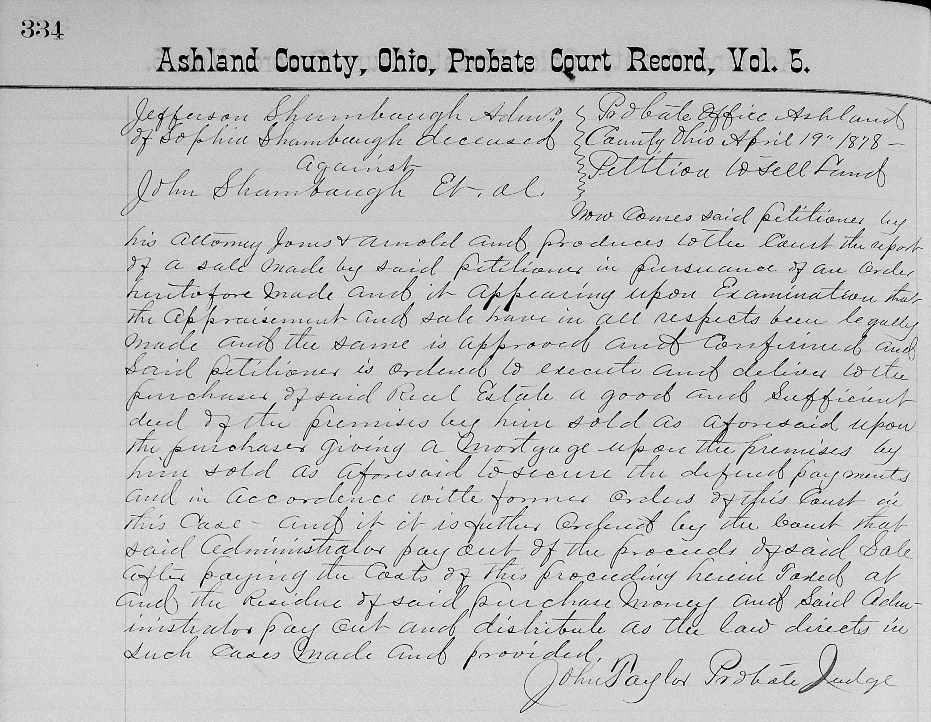 334
Ashland County, Ohio, Probate Court Record, Vol. 5.
Jefferson Shambaugh Admr.
of Sophia Shambaugh deceased
Against
John Shambaugh Et. al.
Probate Office Ashland
County Ohio April 19" 1878 -
Petition to sell Land
Now Comes said petitioner by
his Attorney Jones & Arnold and produces to the Court the report
of a sale made by said petitioner in pursuance of an order
heretofore made and it appearing upon Examination that
the Appraisement and sale have in all respects been legally
made and the same is approved and confirmed and
said petitioner is ordered to execute and deliver to the
purchaser of said Real Estate a good and sufficient
deed of the premises by him sold as aforesaid upon
the purchaser giving a mortgage upon the premises by
him sold as aforesaid to secure the deferred payments
and in accordence with former orders of this Court in
this Case - And it it is futher Ordered by the Court that
said Administrator pay out of the proceeds of said Sale
after paying the Costs of this proceeding herein Taxed at
and the Residue of said purchase money and said Adm-
inistrator pay out and distribute as the law directs in
such cases made and provided
John Taylor Probate Judge